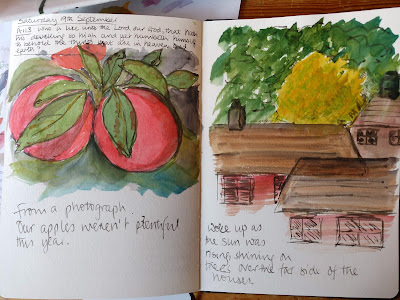 Saturday 19th September
Ps 113 Who is like unto the Lord our God, that hath
his dwelling so high and yet humbleth himself
to behold the things that are in heaven and
earth?
From a photograph.
Our apples weren't plentiful
this year.
Woke up as
the sun was
rising shining on
trees over the far side of the
houses.